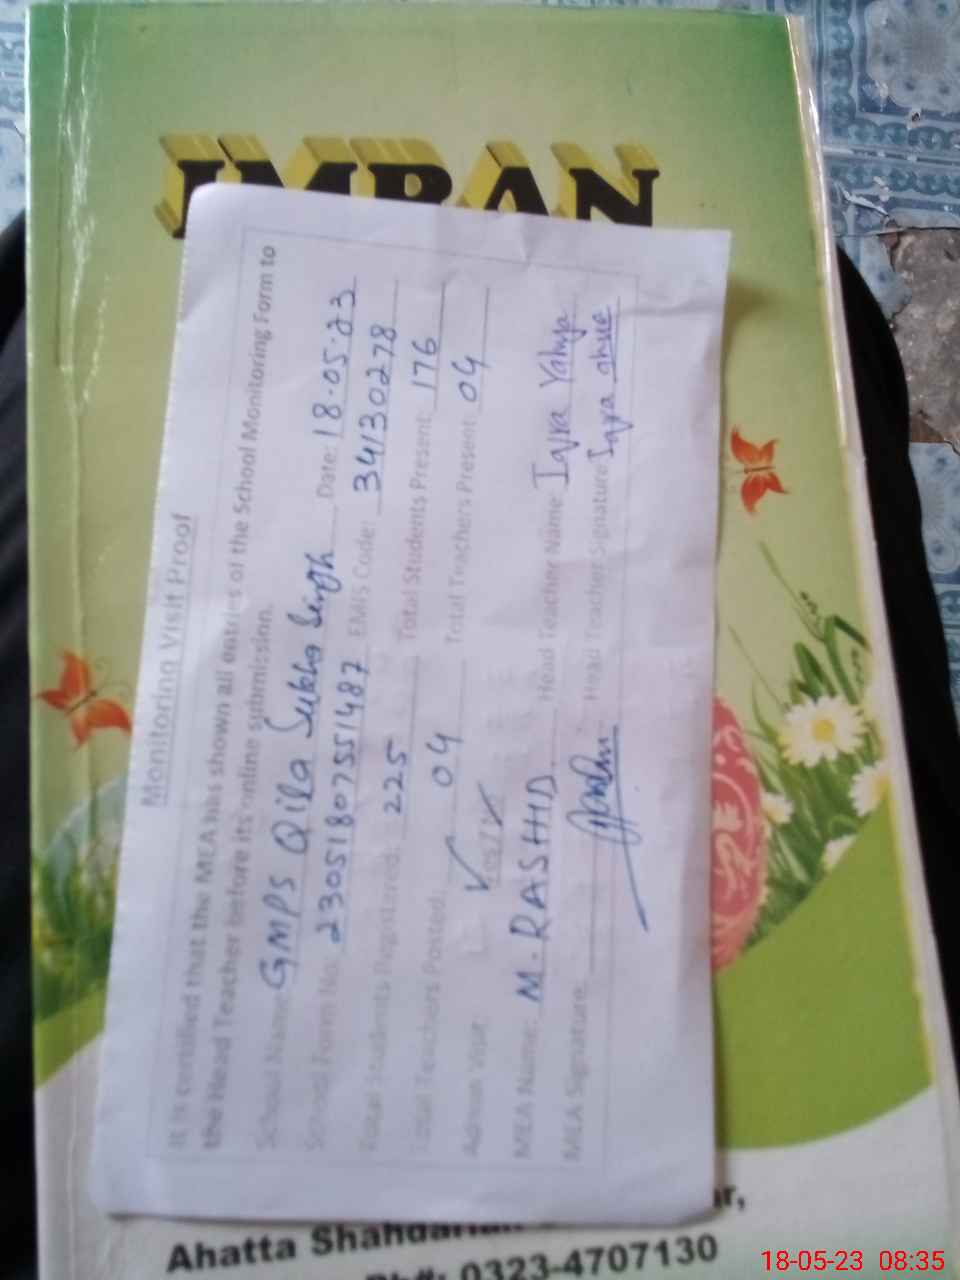 IMRAN
Monitoring Visit Proof
It is certified that the MEA has shown all entries of the School Monitoring Form to
the Head Teacher before its online submission.
School Name: GMPS Qila Sukha Singh Date: 18.05.23
School Form No: 23051807551487 EMIS Code: 34130278
Total Students Registered: 225 Total Students Present: 176
Total Teachers Posted: 04 Total Teachers Present: 04
Admin Visit: Yes /
MEA Name: M. RASHID Head Teacher Name: Iqra Yahya
MEA Signature: Head Teacher Signature: Iqra
Ahatta
Ph#: 0323-4707130
18-05-23 08:35